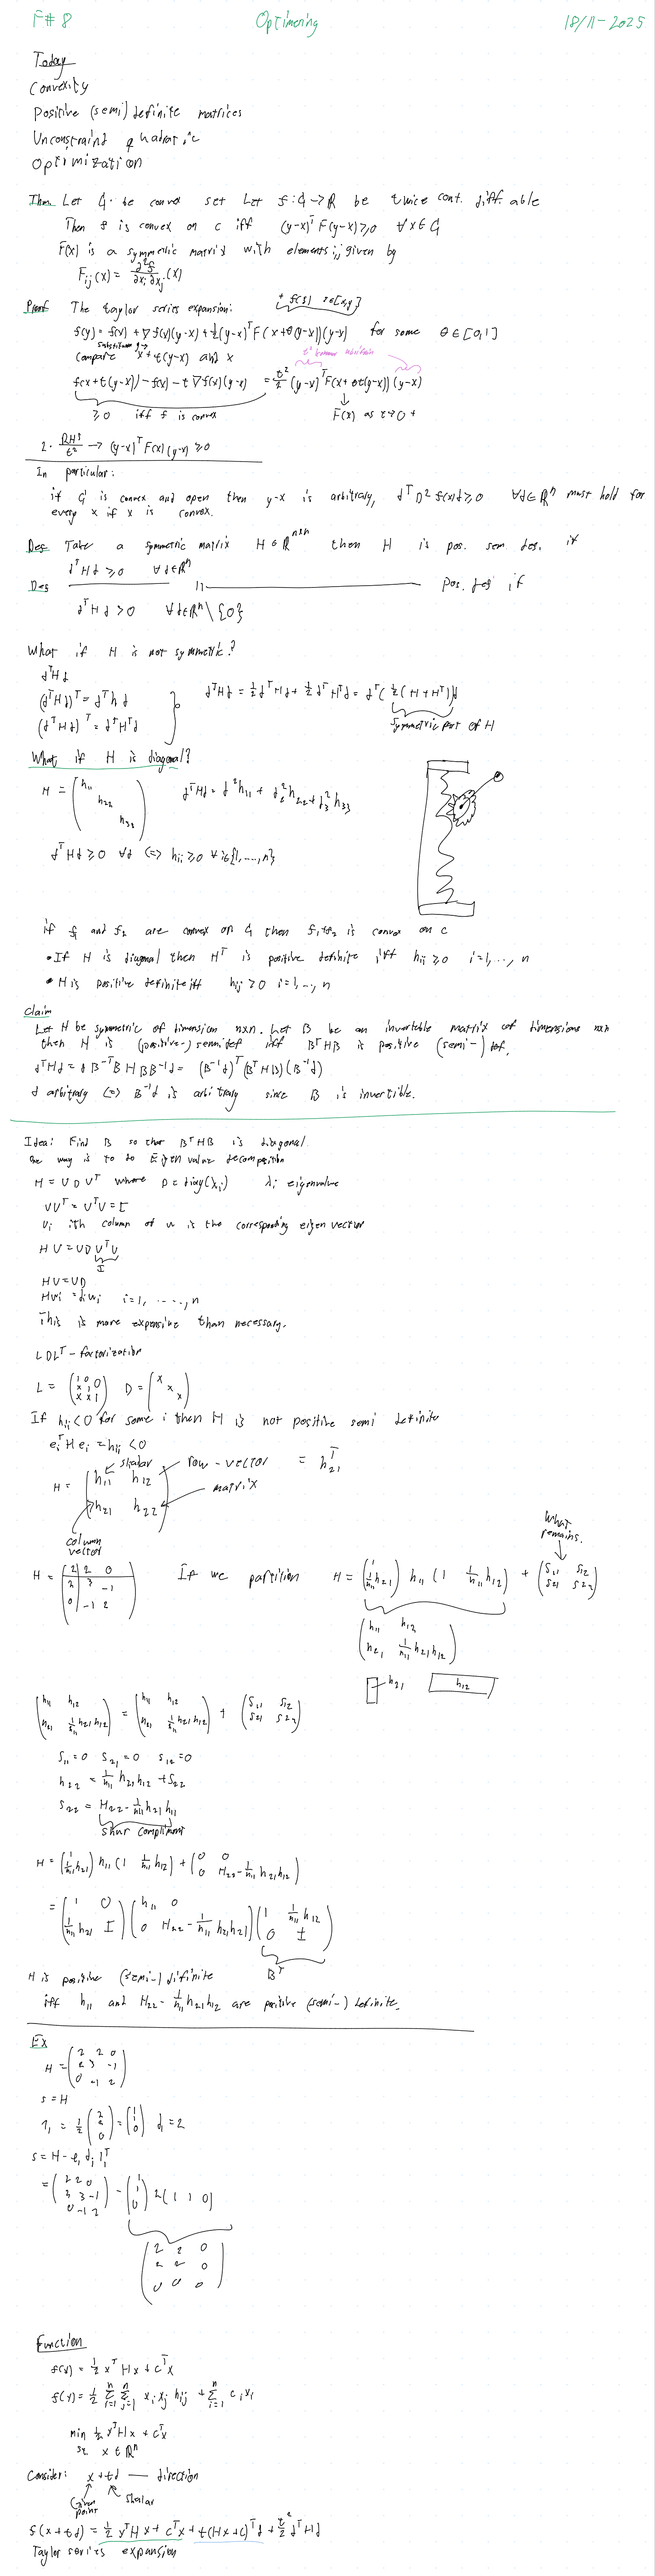 F# 8 Optimering 18/11-2025
Today
Convexity
Positive (semi) definite matrices
Unconstraind quadratic
Optimization
Thm. Let G be convex set Let f: G → R be twice cont. diff. able
Then f is convex on C iff (y-x)ᵀ F(y-x) ≥ 0 ∀x∈G
F(x) is a symmetric matrix with elements i,j given by
F_ij(x) = ∂²f/∂x_i∂x_j (x)
Proof The taylor series expansion:
f(y) = f(x) + ∇f(x)(y-x) + ½(y-x)ᵀ F(x+θ(y-x))(y-x) for some θ∈[0,1]
Compare x + t(y-x) and x
f(x+t(y-x)) - f(x) - t∇f(x)(y-x) = t²/2 (y-x)ᵀ F(x+θt(y-x)) (y-x)
≥0 iff f is convex F(x) as t→0+
2· RHS/t² → (y-x)ᵀ F(x)(y-x) ≥ 0
In particular:
if G is convex and open then y-x is arbitrary, dᵀ D² f(x)d ≥ 0 ∀d∈Rⁿ must hold for
every x if x is convex.
Def Take a symmetric matrix H ∈ Rⁿˣⁿ then H is pos. sem. def. if
dᵀHd ≥ 0 ∀d∈Rⁿ
Def —— 11 —— pos. def if
dᵀHd > 0 ∀d∈Rⁿ\{0}
What if H is not symmetric?
dᵀHd
(dᵀHd)ᵀ = dᵀhd
(dᵀHd)ᵀ = dᵀHᵀd
dᵀHd = ½dᵀHd + ½dᵀHᵀd = dᵀ(½(H+Hᵀ))d
Symmetric part of H
What if H is diagonal?
H = (h₁₁ h₂₂ h₃₃) dᵀHd = d²h₁₁ + d₂²h₂₂ + d₃²h₃₃
dᵀHd ≥ 0 ∀d (=) h_ii ≥ 0 ∀i∈{1,...,n}
if f₁ and f₂ are convex on G then f₁+f₂ is convex on C
• If H is diagonal then Hᵀ is positive definite iff h_ii ≥ 0 i=1,..., n
• H is positive definite iff h_ij > 0 i=1,.., n
Claim
Let H be symmetric of dimension nxn. Let B be an invertable matrix of dimensions nxn
then H is (positive-) semidef iff BᵀHB is positive (semi-) def.
dᵀHd = d B⁻ᵀB H B B⁻¹d = (B⁻¹d)ᵀ(BᵀHB)(B⁻¹d)
d arbitrary (=) B⁻¹d is arbitrary since B is invertible.
Idea: Find B so that BᵀHB is diagonal.
One way is to do Eigen value decomposition
H = UDUᵀ where D = diag(λ_i) λ_i eigenvalue
UUᵀ = UᵀU = I
U_i ith column of u is the corresponding eigen vector
HU = UDUᵀU
I
HU = UD
Hu_i = d_iu_i i=1, ....., n
This is more expensive than necessary.
LDLᵀ - factorization
L = (1 0 0 x 1 0 x x 1) D = (x x x)
If h_ii < 0 for some i then H is not positive semi definite
e_iᵀ H e_i = h_ii < 0
skalar row-vector = h₂₁ᵀ
H = (h₁₁ h₁₂ h₂₁ h₂₂) matrix
column vector
What remains.
H = (2 2 0 2 3 -1 0 -1 2) If we partition H = (1 1/h₁₁ h₂₁) h₁₁ (1 1/h₁₁ h₁₂) + (S₁₁ S₁₂ S₂₁ S₂₂)
(h₁₁ h₁₂ h₂₁ 1/h₁₁ h₂₁h₁₂)
h₂₁ h₁₂
(h₁₁ h₁₂ h₂₁ 1/h₁₁ h₂₁h₁₂) = (h₁₁ h₁₂ h₂₁ 1/h₁₁ h₂₁h₁₂) + (S₁₁ S₁₂ S₂₁ S₂₂)
S₁₁=0 S₂₁=0 S₁₂=0
h₂₂ = 1/h₁₁ h₂₁h₁₂ + S₂₂
S₂₂ = H₂₂ - 1/h₁₁ h₂₁h₁₁
Shur compliment
H = (1 1/h₁₁ h₂₁) h₁₁ (1 1/h₁₁ h₁₂) + (0 0 0 H₂₂ - 1/h₁₁ h₂₁h₁₂)
= (1 0 1/h₁₁ h₂₁ I)(h₁₁ 0 0 H₂₂ - 1/h₁₁ h₂₁h₂₁)(1 1/h₁₁ h₁₂ 0 I)
Bᵀ
H is positive (semi-) difinite
iff h₁₁ and H₂₂ - 1/h₁₁ h₂₁h₁₂ are positive (semi-) definite.
Ex
H = (2 2 0 2 3 -1 0 -1 2)
S = H
l₁ = ½(2 2 0) = (1 1 0) d₁ = 2
S = H - l_i d_i l_iᵀ
= (2 2 0 3 3 -1 0 -1 2) - (1 1 0) 2(1 1 0)
(2 2 0 2 2 0 0 0 0)
Function
f(x) = ½ xᵀHx + cᵀx
f(x) = ½ Σ Σ x_i x_j h_ij + Σ c_i x_i
min ½ xᵀHx + cᵀx
x ∈ Rⁿ
Consider: x + td — direction
Given point skalar
f(x+td) = ½ xᵀHx + cᵀx + t(Hx+c)ᵀd + t²/2 dᵀHd
Taylor series expansion